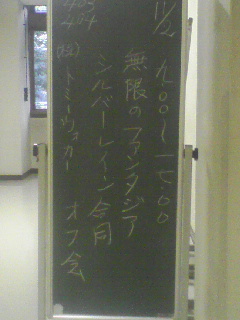 11/2 九:00〜一七:00
無限のファンタジア
シルバーレイン合同
(株)トミーウォーカー オフ会
403
404